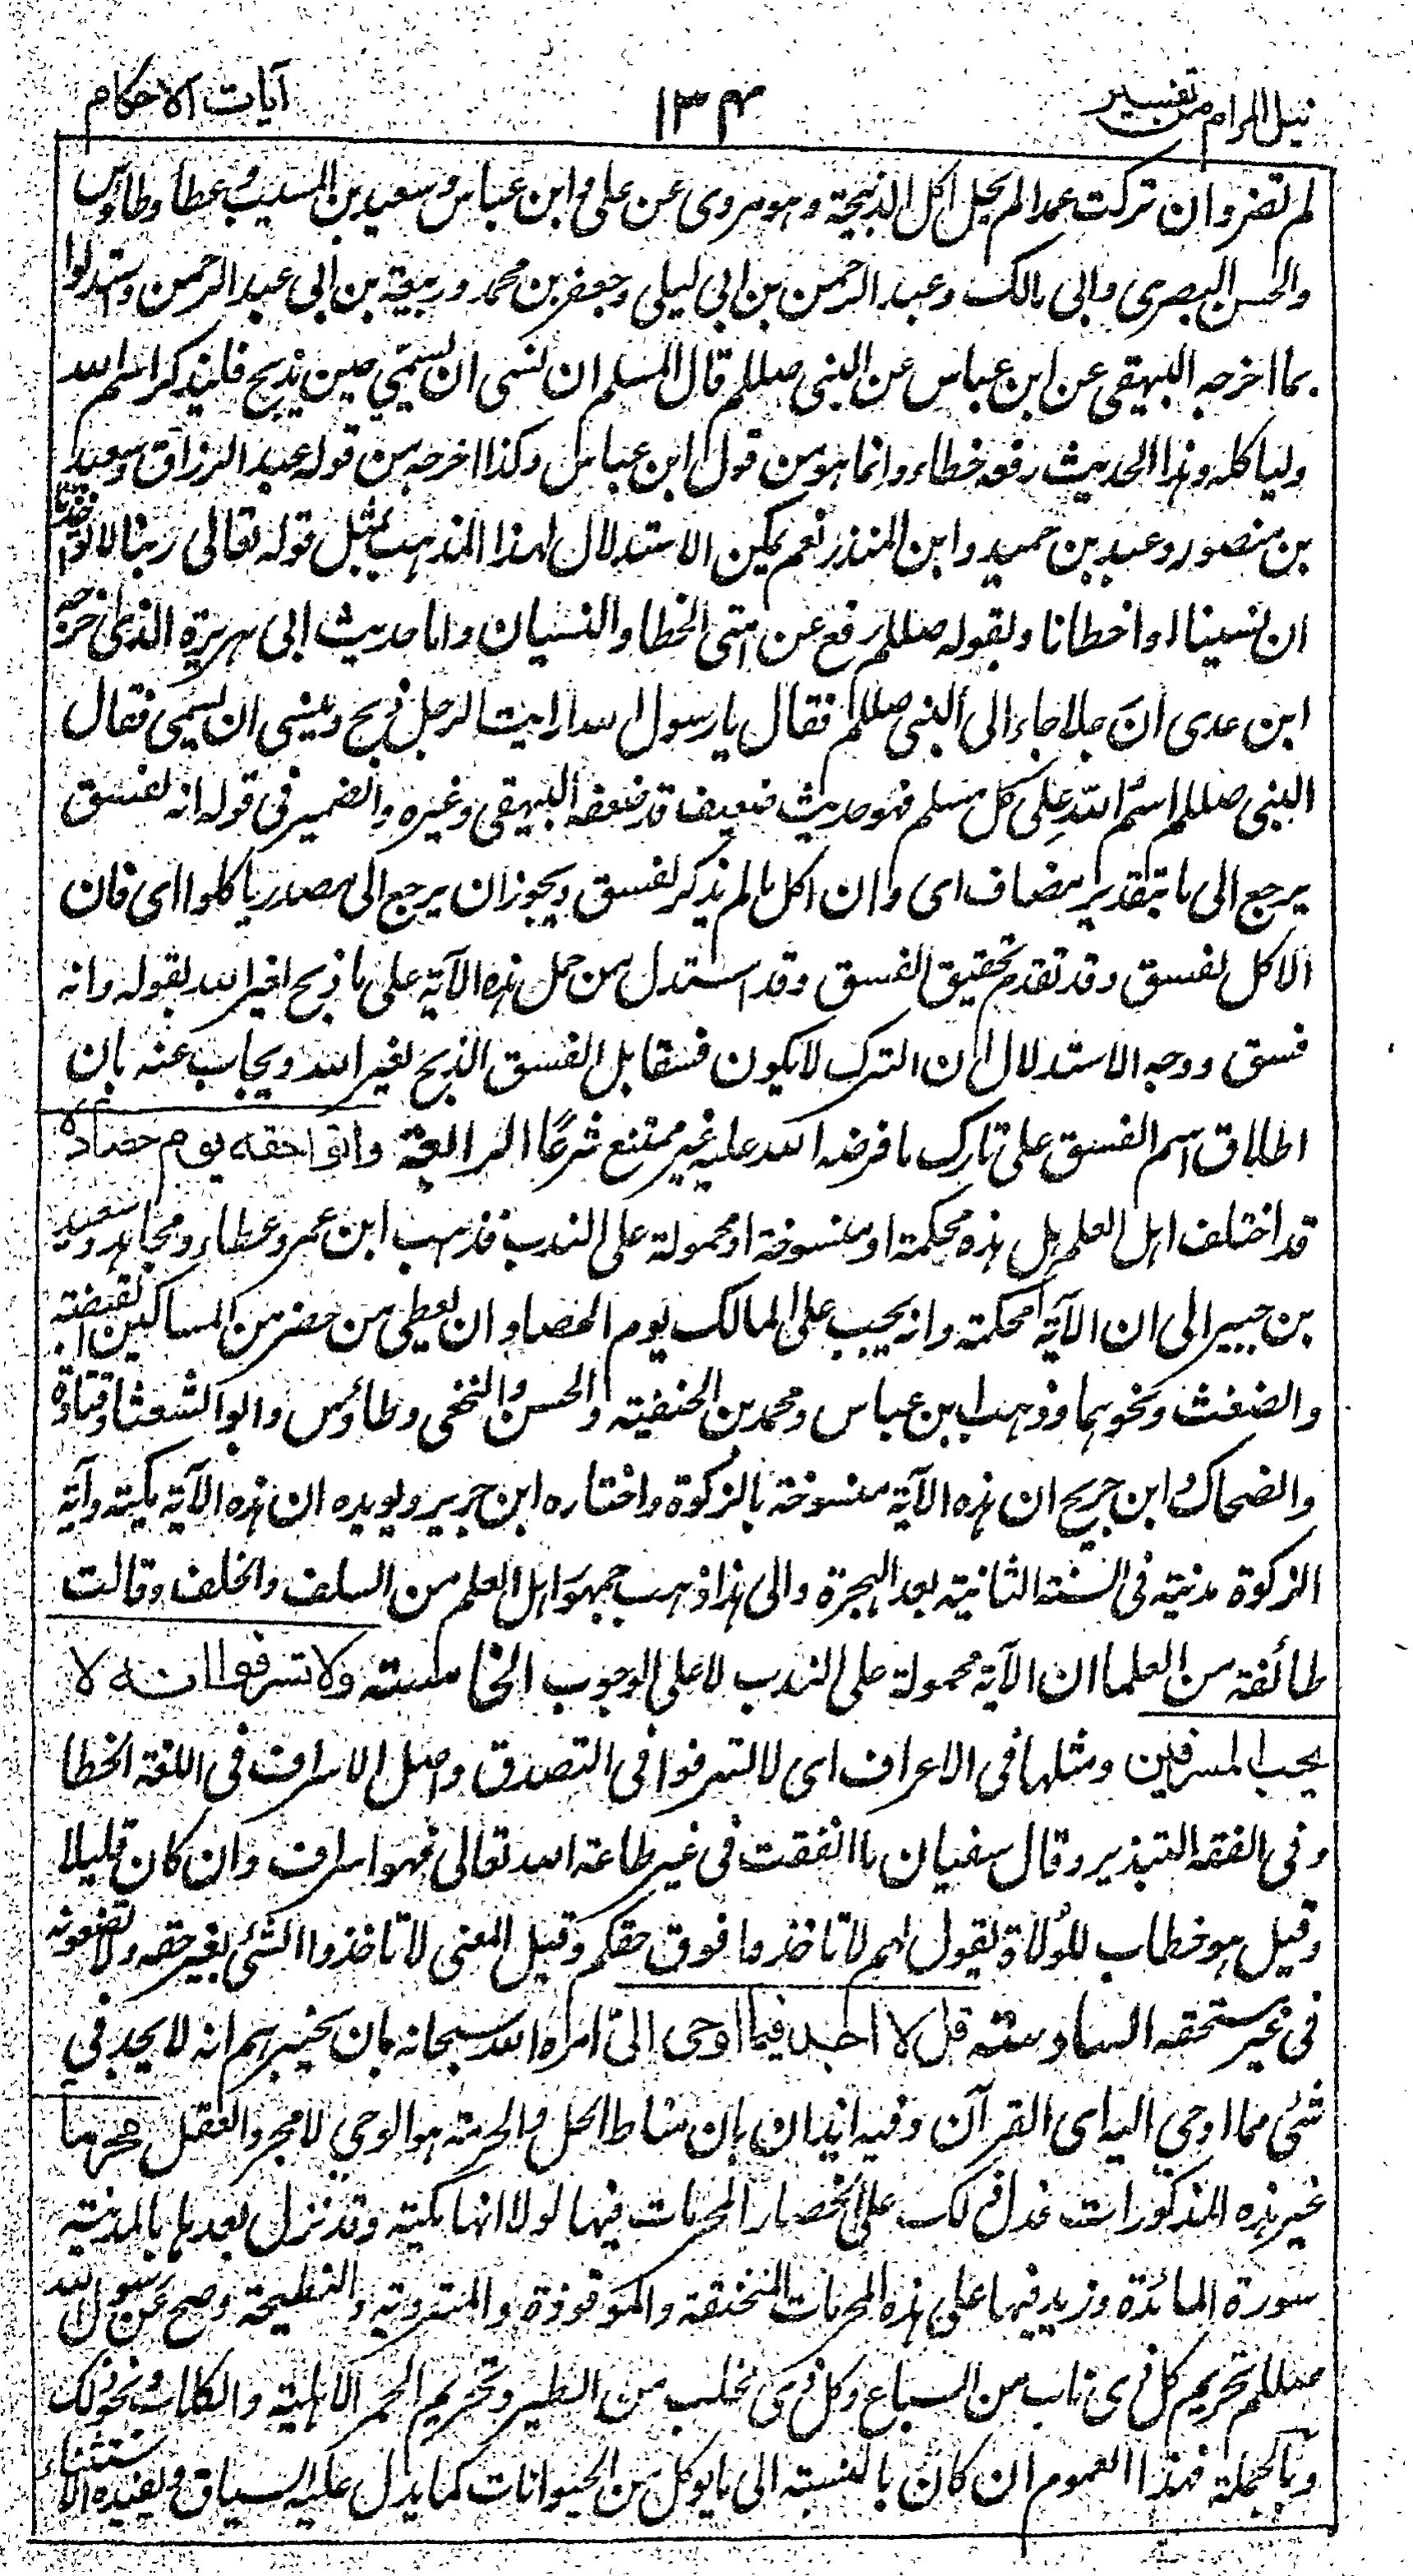 نيل المرام من تفسير ١٣٤ آيات الاحكام
لم تضر وان تركت عمدا لم يحل اكل الذبيحة وهو مروى عن على وابن عباس وسعيد بن المسيب وعطا وطاؤس
والحسن البصرى وابى مالك وعبد الرحمن بن ابى ليلى وجعفر بن محمد وربيعة بن ابى عبد الرحمن واستدلوا
بما اخرجه البيهقى عن ابن عباس عن النبى صللم قال المسلم ان نسى ان يسمّي حين يذبح فليذكر اسم الله
ولياكله وهذا الحديث رفعه خطاء وانما هو من قول ابن عباس وكذا اخرجه من قوله عبد الرزاق وسعيد
بن منصور وعبد بن حميد وابن المنذر نعم يمكن الاستدلال لهذا المذهب بمثل قوله تعالى ربنا لا تؤاخذنا
ان نسينا او اخطانا وبقوله صللم رفع عن امتى الخطا والنسيان واما حديث ابى هريرة الذى اخرجه
ابن عدى ان رجلا جاء الى النبى صللم فقال يا رسول الله ارايت الرجل يذبح وينسى ان يسمى فقال
النبى صللم اسم الله على كل مسلم فهو حديث ضعيف قد ضعفه البيهقى وغيره والضمير فى قوله انه لفسق
يرجع الى ما بتقدير مضاف اى وان اكل ما لم يذكر لفسق ويجوز ان يرجع الى مصدر ياكلوا اى فان
الاكل لفسق وقد تقدم تحقيق الفسق وقد استدل من حمل هذه الآية على ما ذبح لغير الله بقوله وانه
فسق ووجه الاستدلال ان الترك لا يكون فسقا بل الفسق الذبح لغير الله ويجاب عنه بان
اطلاق اسم الفسق على تارك ما فرضه الله عليه غير ممتنع شرعًا الرابعة واتوا حقه يوم حصاده
قد اختلف اهل العلم هل هذه محكمة او منسوخة او محمولة على الندب فذهب ابن عمر وعطاء ومجاهد وسعيد
بن جبير الى ان الآية محكمة وانه يجب على المالك يوم الحصاد ان يعطى من حضر من المساكين القبضة
والضغث ونحوهما وذهب ابن عباس ومحمد بن الحنفية والحسن والنخعى وطاؤس وابو الشعثا وقتادة
والضحاك وابن جريج ان هذه الآية منسوخة بالزكوة واختاره ابن جرير ويويده ان هذه الآية مكية وآية
الزكوة مدنية فى السنة الثانية بعد الهجرة والى هذا ذهب جمهور اهل العلم من السلف والخلف وقالت
طائفة من العلما ان الآية محمولة على الندب لا على الوجوب الخامسة ولا تسرفوا انه لا
يحب المسرفين ومثلها فى الاعراف اى لا تسرفوا فى التصدق واصل الاسراف فى اللغة الخطا
وفى الفقه التبذير وقال سفيان ما انفقت فى غير طاعة الله تعالى فهو اسراف وان كان قليلا
وقيل هو خطاب للولاة يقول لهم لا تاخذوا فوق حقكم وقيل المعنى لا تاخذوا الشئ بغير حقه ولا تضعونه
فى غير مستحقه السادسة قل لا اجد فيما اوحى الىّ امره الله سبحانه بان يخبرهم انه لا يجد في
شئ مما اوحي اليه اى القرآن وفيه ايذان بان مناط الحل والحرمة هو الوحي لا مجرد العقل محرما
غير هذه المذكورات فدل ذلك على انحصار المحرمات فيها لولا انها مكية وقد نزل بعدها بالمدينة
سورة المائدة وزيد فيها على هذه المحرمات المنخنقة والموقوذة والمتردية والنطيحة وصح عن رسول الله
صللم تحريم كل ذى ناب من السباع وكل ذى مخلب من الطير وتحريم الحمر الاهلية والكلاب ونحو ذلك
وبالجملة فهذا العموم ان كان بالنسبة الى ما يوكل من الحيوانات كما يدل عليه السياق ويفيده الاستثناء